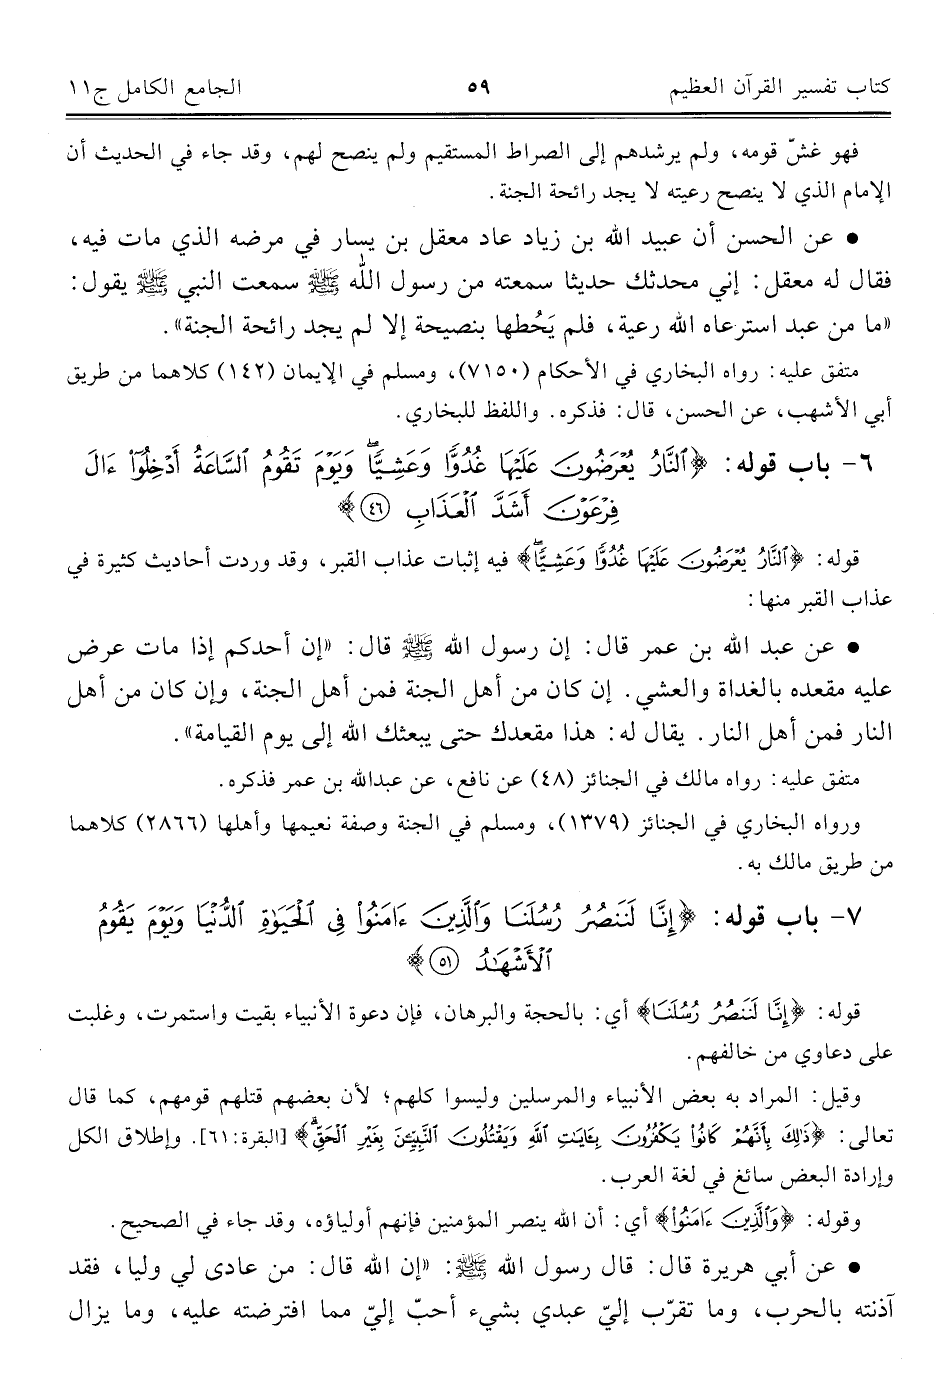 كتاب تفسير القرآن العظيم ٥٩ الجامع الكامل ج١١
فهو غشّ قومه، ولم يرشدهم إلى الصراط المستقيم ولم ينصح لهم، وقد جاء في الحديث أن
الإمام الذي لا ينصح رعيته لا يجد رائحة الجنة.
• عن الحسن أن عبيد الله بن زياد عاد معقل بن يسار في مرضه الذي مات فيه،
فقال له معقل: إني محدثك حديثا سمعته من رسول الله ﷺ سمعت النبي ﷺ يقول:
«ما من عبد استرعاه الله رعية، فلم يَحُطها بنصيحة إلا لم يجد رائحة الجنة».
متفق عليه: رواه البخاري في الأحكام (٧١٥٠)، ومسلم في الإيمان (١٤٢) كلاهما من طريق
أبي الأشهب، عن الحسن، قال: فذكره. واللفظ للبخاري.
٦- باب قوله: ﴿ٱلنَّارُ يُعۡرَضُونَ عَلَيۡهَا غُدُوّٗا وَعَشِيّٗاۖ وَيَوۡمَ تَقُومُ ٱلسَّاعَةُ أَدۡخِلُوٓاْ ءَالَ
فِرۡعَوۡنَ أَشَدَّ ٱلۡعَذَابِ ٤٦﴾
قوله: ﴿ٱلنَّارُ يُعۡرَضُونَ عَلَيۡهَا غُدُوّٗا وَعَشِيّٗاۖ﴾ فيه إثبات عذاب القبر، وقد وردت أحاديث كثيرة في
عذاب القبر منها:
• عن عبد الله بن عمر قال: إن رسول الله ﷺ قال: «إن أحدكم إذا مات عرض
عليه مقعده بالغداة والعشي. إن كان من أهل الجنة فمن أهل الجنة، وإن كان من أهل
النار فمن أهل النار. يقال له: هذا مقعدك حتى يبعثك الله إلى يوم القيامة».
متفق عليه: رواه مالك في الجنائز (٤٨) عن نافع، عن عبدالله بن عمر فذكره.
ورواه البخاري في الجنائز (١٣٧٩)، ومسلم في الجنة وصفة نعيمها وأهلها (٢٨٦٦) كلاهما
من طريق مالك به.
٧- باب قوله: ﴿إِنَّا لَنَنصُرُ رُسُلَنَا وَٱلَّذِينَ ءَامَنُواْ فِي ٱلۡحَيَوٰةِ ٱلدُّنۡيَا وَيَوۡمَ يَقُومُ
ٱلۡأَشۡهَٰدُ ٥١﴾
قوله: ﴿إِنَّا لَنَنصُرُ رُسُلَنَا﴾ أي: بالحجة والبرهان، فإن دعوة الأنبياء بقيت واستمرت، وغلبت
على دعاوي من خالفهم.
وقيل: المراد به بعض الأنبياء والمرسلين وليسوا كلهم؛ لأن بعضهم قتلهم قومهم، كما قال
تعالى: ﴿ذَٰلِكَ بِأَنَّهُمۡ كَانُواْ يَكۡفُرُونَ بِـَٔايَٰتِ ٱللَّهِ وَيَقۡتُلُونَ ٱلنَّبِيِّـۧنَ بِغَيۡرِ ٱلۡحَقِّۗ﴾ [البقرة: ٦١]. وإطلاق الكل
وإرادة البعض سائغ في لغة العرب.
وقوله: ﴿وَٱلَّذِينَ ءَامَنُواْ﴾ أي: أن الله ينصر المؤمنين فإنهم أولياؤه، وقد جاء في الصحيح.
• عن أبي هريرة قال: قال رسول الله ﷺ: «إن الله قال: من عادى لي وليا، فقد
آذنته بالحرب، وما تقرّب إليّ عبدي بشيء أحبّ إليّ مما افترضته عليه، وما يزال